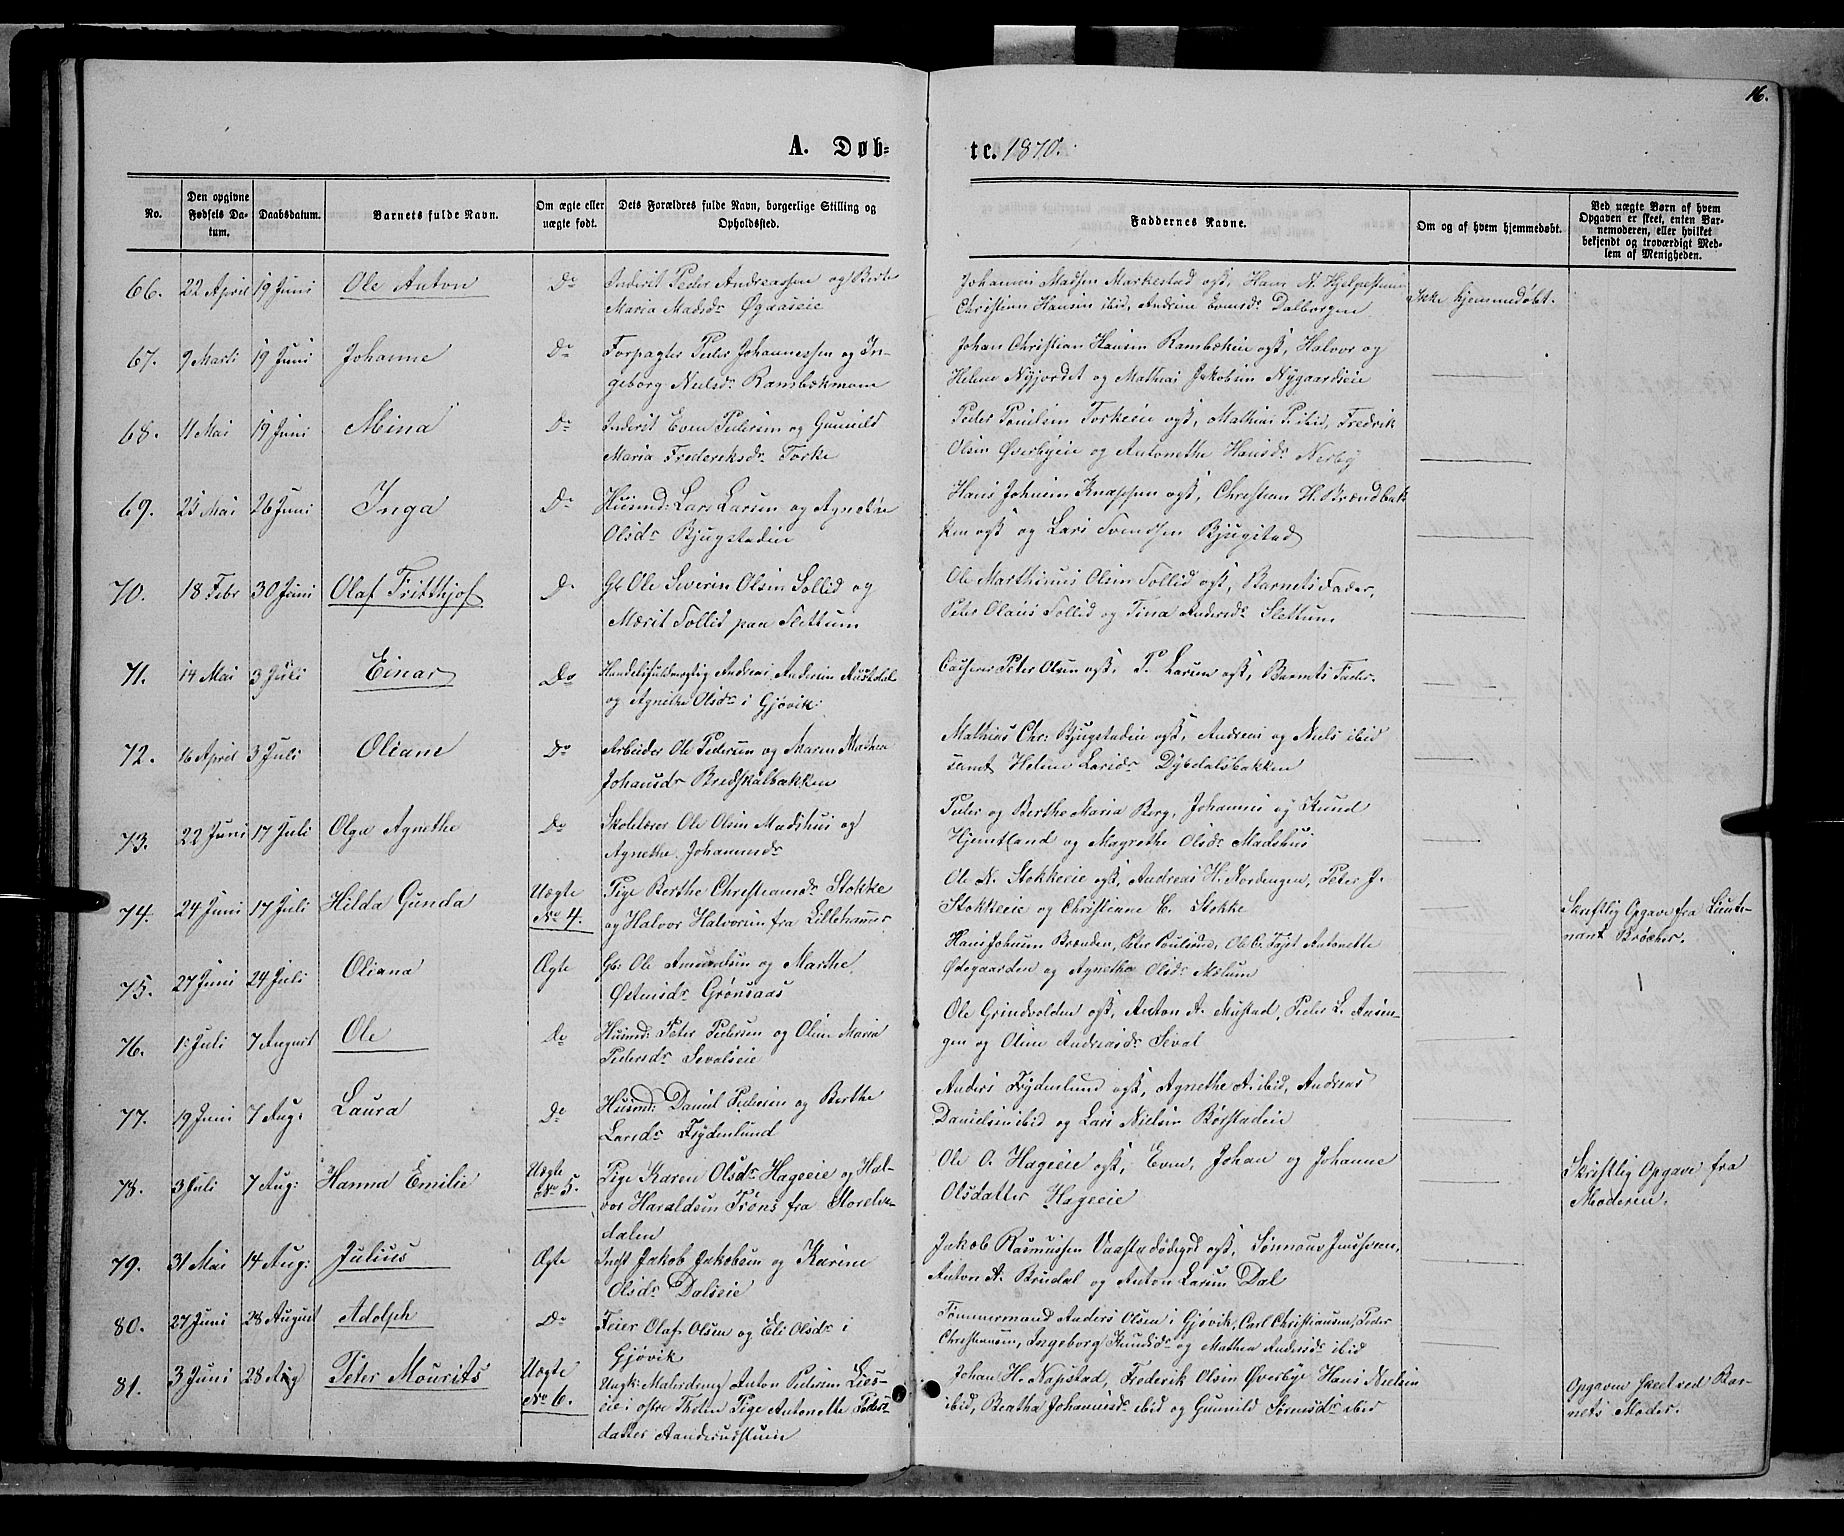 16.
A. Døb-
te. 1870.
No.
Den opgivne Fødsels Da-tum.
Daabsdatum.
Barnets fulde Navn.
Om ægte eller uægte født.
Dets Forældres fulde Navn, borgerlige Stilling og Opholdssted.
Faddernes Navne.
Om og af hvem hjemmedøbt.
Ved uægte Børn af hvem Opgaven er skeet, enten Bar-nemoderen, eller hvilket bekjendt og troværdigt Med-lem af Menigheden.
66. 22 April 19 Juni Ole Anton Do Inderst Peder Andreassen og Berte
Maria Madsdr Øgaaseie
Johannes Madsen Markestad ogst, Hans N. Hjelpestuen
Christian Hansen ibid, Andrine Evensdr Dalborgen
Ikke hjemmedøbt.
67. 9 Marts 19 Juni Johanne Do Forpagter Peder Johannessen og In-
geborg Nielsdr Rambækmoen
Johan Christian Hansen Rambækeie ogst, Halvor og
Helene Nyjordet og Mathias Jakobsen Nygaardseie
68. 11 Mai 19 Juni Mina Do Inderst Even Pedersen og Gunild
Maria Frederiksdr Torke
Peder Poulsen Torkeeie ogst, Mathias P. ibid, Fredrik
Olsen Øverbyeie og Antonethe Hansdr Nerby
69. 25 Mai 26 Juni Inga Do Husmd: Lars Larsen og Agnethe
Olsdr Bjugstadeie
Hans Johnsen Knappen ogst, Christian H. Brændbak
ken ogst og Lars Svendsen Bjugstad
70. 18 Febr 30 Juni Olaf Frithjof Do Gbr Ole Severin Olsen Sollid og
Mærit Sollid paa Slettum
Ole Marthinus Olsen Sollid ogst, Barnets Fader,
Peter Olaus Sollid og Tina Andersdr Slettum.
71. 14 Mai 3 Juli Einar Do Handelsfuldmægtig Andreas Andersen Austdal
og Agnethe Olsdr i Gjøvik.
Casper Peter Olsen ogst, P. Larsen ogst, Barnets Fader.
72. 16 April 3 Juli Oliane Do Arbeider Ole Pedersen og Maren Mathea
Johansdr Bredskalbækken
Mathias Chr: Bjugstadeie ogst, Andreas og Niels ibid
samt Helene Larsdr Dybdalsbakken
73. 22 Juni 17 Juli Olga Agnethe Do Skolelærer Ole Olsen Madshus og
Agnethe Johannesdr
Peter og Berthe Maria Berg, Johannes og Knud
Hjemtland og Magrethe Olsdr Madshus
74. 24 Juni 17 Juli Hilda Gunda Uægte No 4. Pige Berthe Christiansdr Stokke
og Halvor Halvorsen fra Lillehamer
Ole N. Stokkeeie ogst, Andreas H. Nordengen, Peter J.
Stokkeeie og Christiane E. Stokke
Skriftlig Opgave fra Lieute-
nant Bröcher.
75. 27 Juni 24 Juli Oliana Ægte Gbr Ole Amundsen og Marthe
Østensdr Grønsaas
Hans Johnsen Brænden, Peter Poulsen, Ole O. Fast Antonette
Ødegaarden og Agnethe Olsdr Mælum
76. 1: Juli 7 August Ole Do Husmd: Peter Pedersen og Oline Maria
Pedersdr Sevalseie
Ole Grindvolden ogst, Anton A. Mustad, Peder L. Aasen-
gen og Oline Andreasdr Seval
77. 19 Juni 7 Aug: Laura Do Husmd: Daniel Pedersen og Berthe
Larsdr Frydenlund
Anders Frydenlund ogst, Agnethe A. ibid, Andreas
Danielsen ibid og Lars Nielsen Børstadeie
78. 3 Juli 7 Aug: Hanna Emilie Uægte No 5. Pige Karen Olsdr Hageeie og Hal-
vor Haraldsen Trøns fra Storelve-
dalen
Ole O. Hageeie ogst, Even, Johan og Johanne
Olsdatter Hageeie
Skriftlig Opgave fra
Moderen.
79. 31 Mai 14 Aug: Julius Ægte Indst Jakob Jakobsen og Karine
Olsdr Dalseie
Jakob Rasmussen Vaastadødegd ogst,
Anton A. Brudal og Anton Larsen Dal
80. 27 Juni 28 August Adolph Do Feier Olaf Olsen og Eli Olsdr i
Gjøvik
Tømmermand Anders Olsen i Gjøvik, Carl Christiansen, Peder
Christiansen, Ingeborg Knudsdr og Mathea Andersdr ibid
81. 3 Juni 28 Aug Peter Mourits Uægte No 6. Ungk: Malerdreng Anton Pedersen Lies-
eie i østre Thoten Pige Antonette Peders-
datter Aanderudstuen
Johan H. Napstad, Frederik Olsen Øverbye, Hans Nielsen
ibid, Beatha Johannesdr ibid og Gunild Sørensdr ibid
Opgaven skeet ved Bar-
nets Moder.